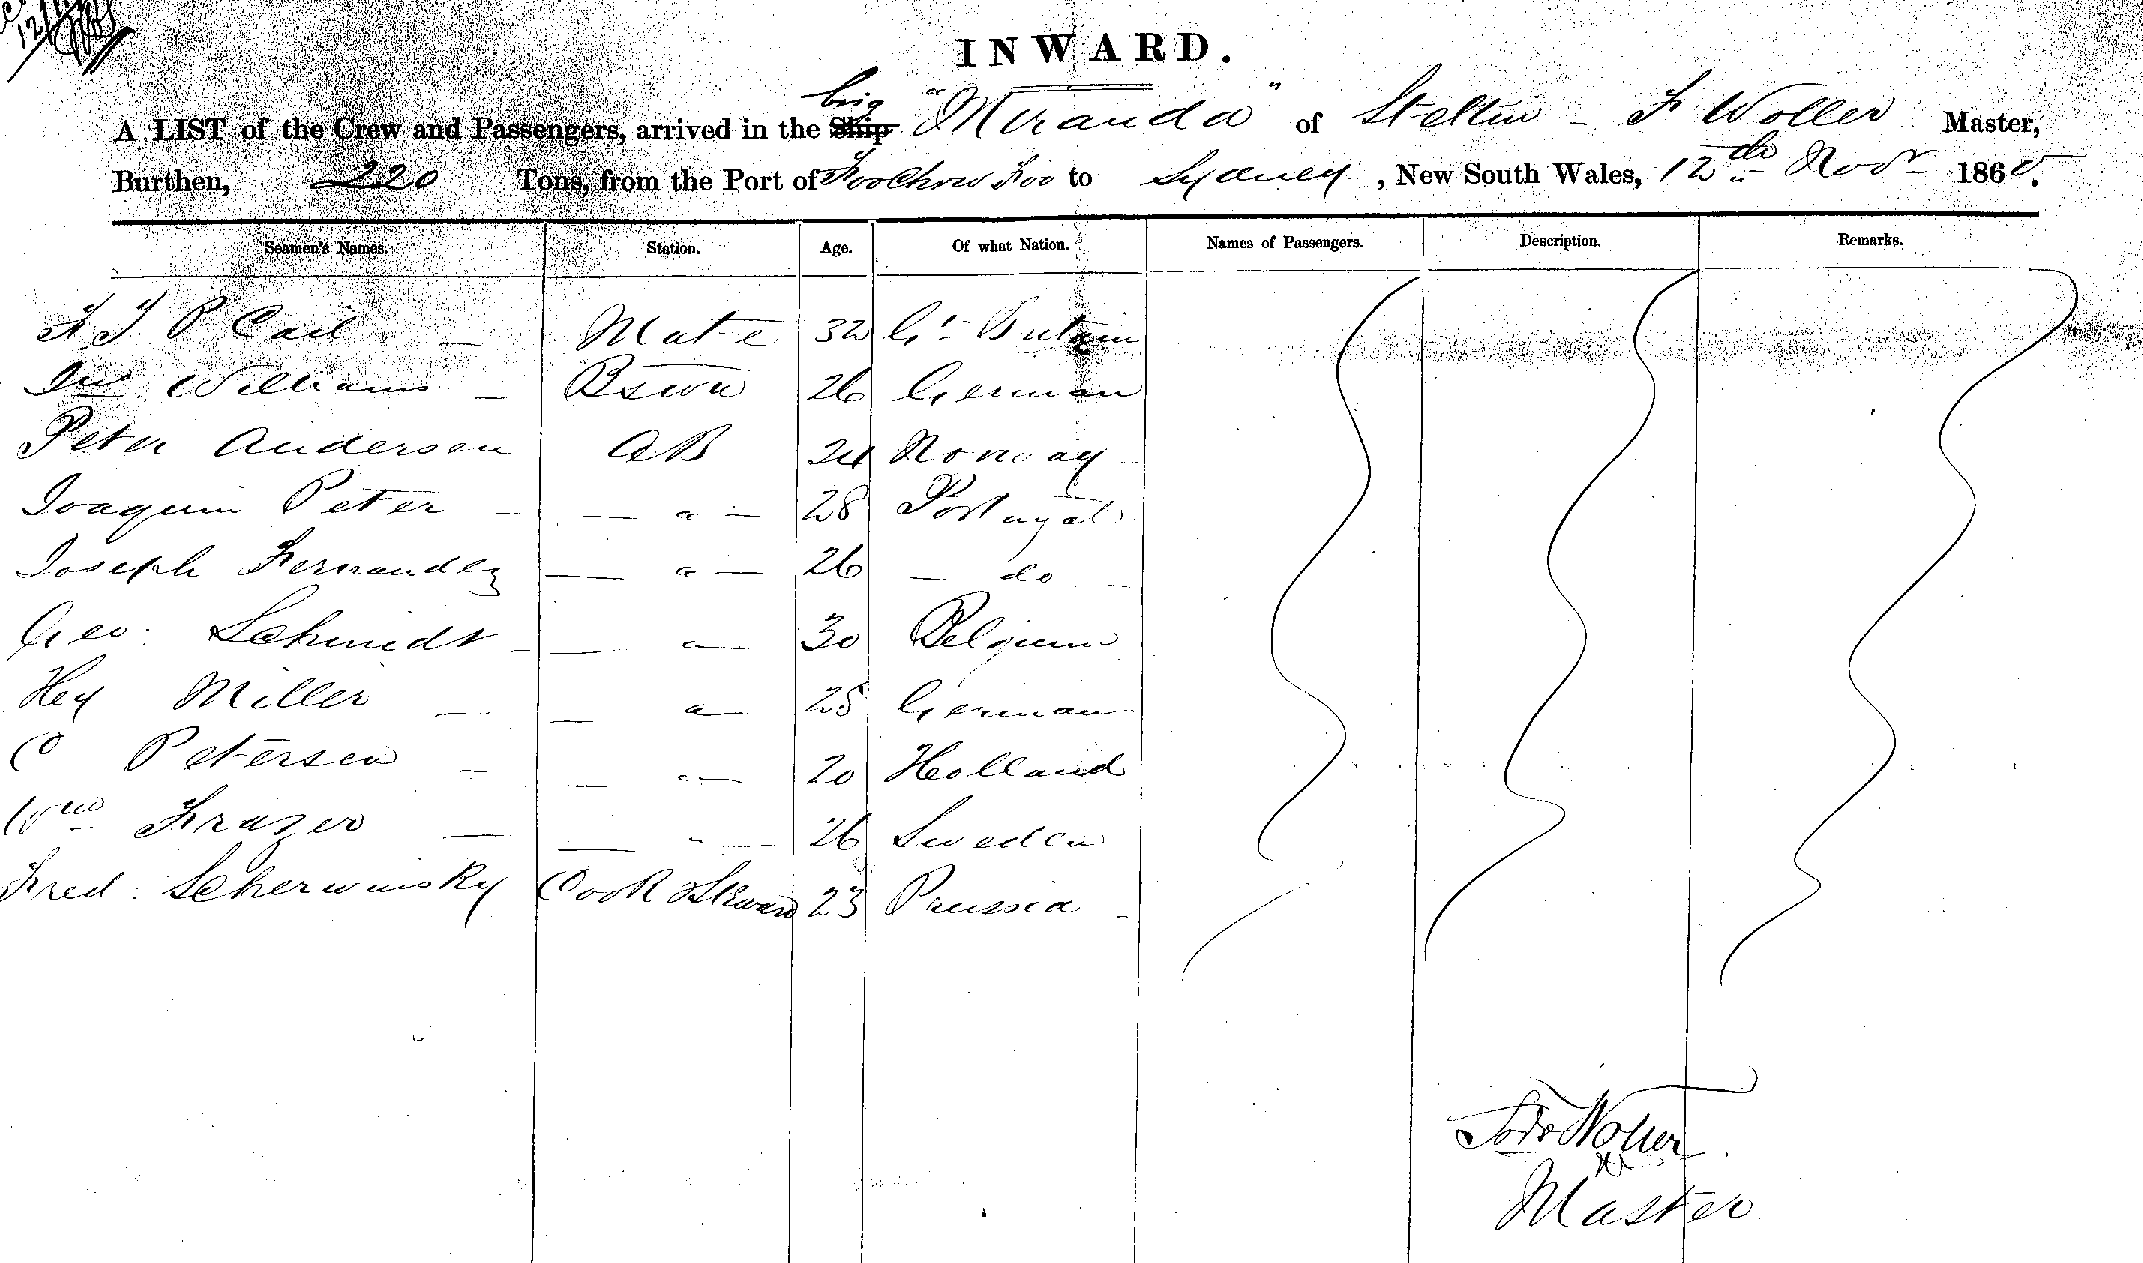 INWARD.
A LIST of the Crew and Passengers, arrived in the Ship brig "Miranda" of Stettin - F Woller Master,
Burthen, 220 Tons, from the Port of Foochow Foo to Sydney, New South Wales, 12th Novr 186
Seamen's Names. Station. Age. Of what Nation. Names of Passengers. Description. Remarks.
F J P Cail - Mate 32 Gt Britain
Jno Williams - Bswn 26 German
Peter Andersen AB 24 Norway
Joaquim Peter - - " - 28 Portugal
Joseph Fernandez - " - 26 - do -
Geo: Schmidt - - " - 30 Belgium
Hey Miller - - " - 25 German
C Petersen - - " - 20 Holland
Wm Frazer - - " - 26 Sweden
Fred: Scherwinsky Cook & Steward 23 Prussia -
Woller
Master